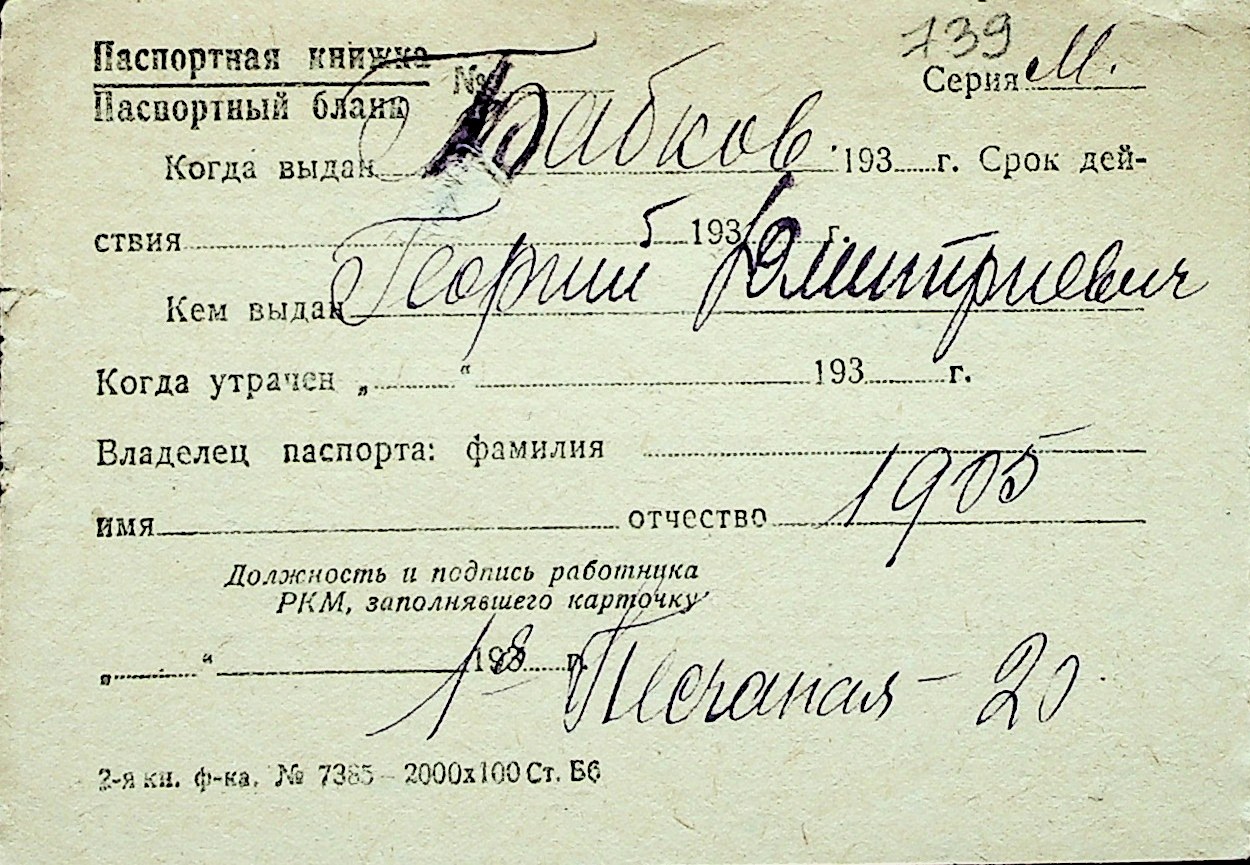 139
Паспортная книжка
№ Серия М.
Паспортный бланк
Бабков
Когда выдан 193 г. Срок дей-
ствия 5 193 г.
Георгий Дмитриевич
Кем выдан
Когда утрачен „ “ 193 г.
Владелец паспорта: фамилия
1905
имя отчество
Должность и подпись работника
РКМ, заполнявшего карточку
„ “ 193 г.
1я Песчаная - 20.
2-я кн. ф-ка. № 7385 — 2000х100 Ст. Б6